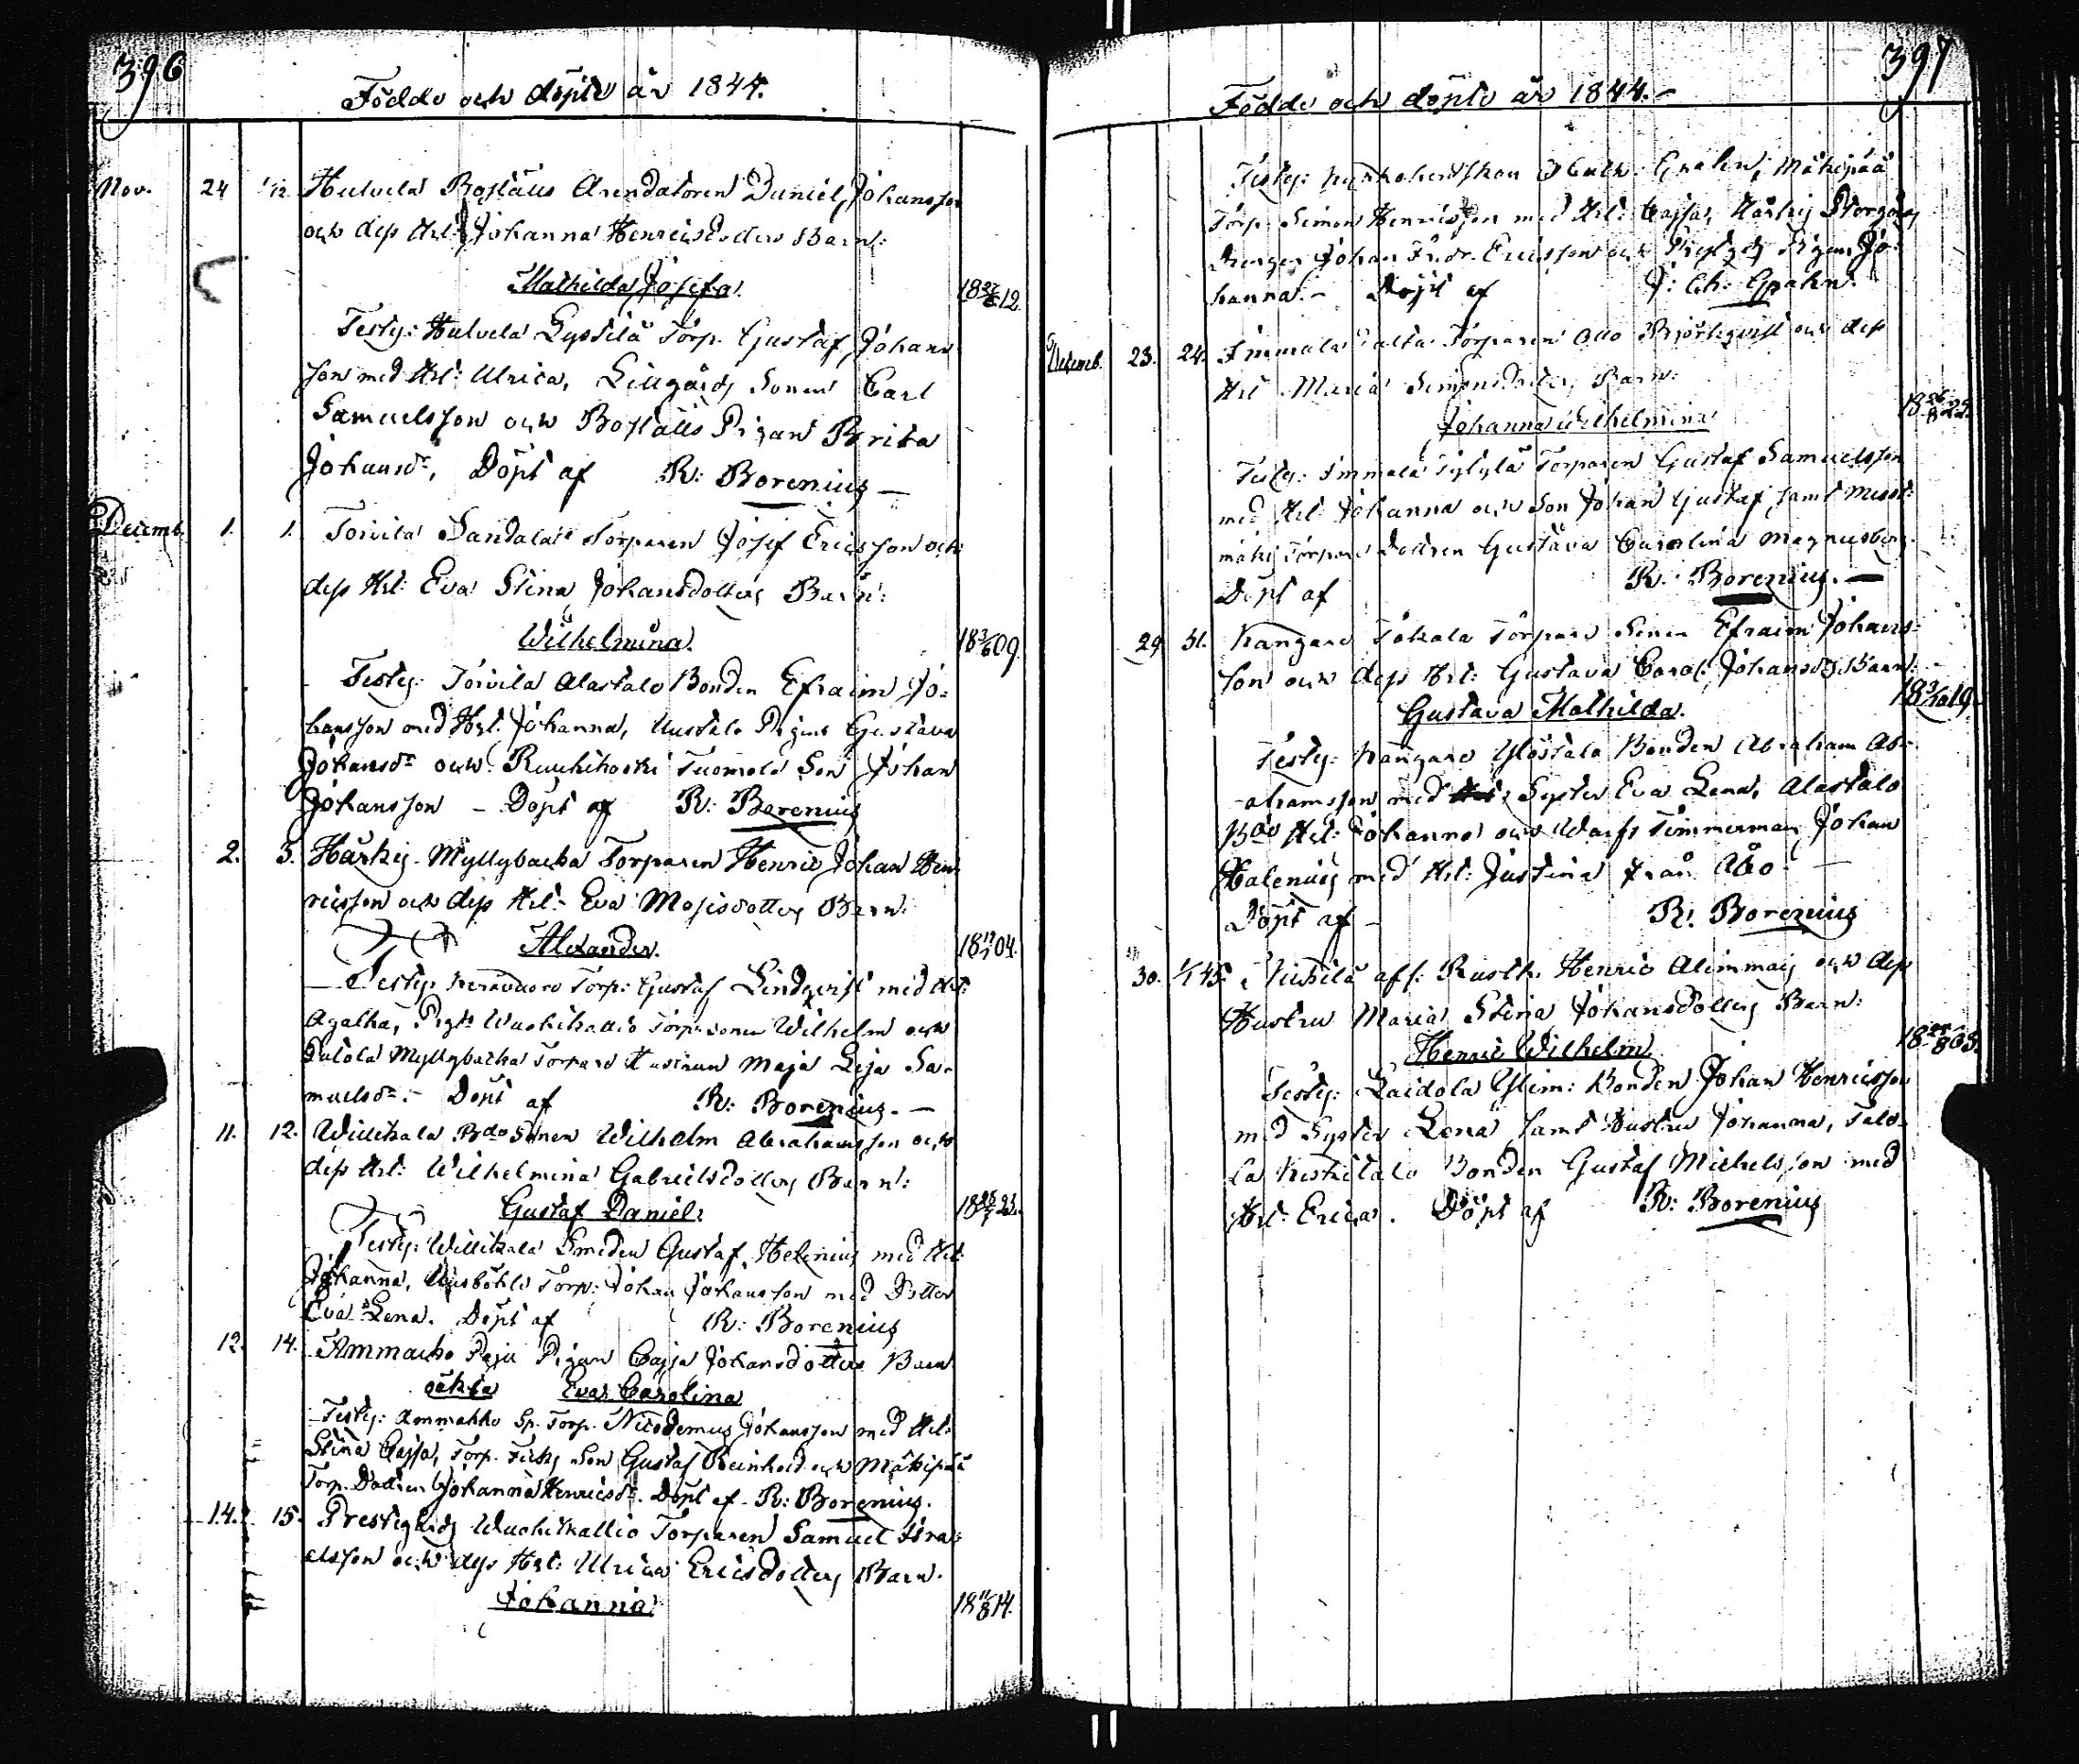 396
Födde och döpte år 1844.
Nov. 24 1/12 Hulvela Boställs Arendatoren Daniel Johansson
och dess Hst: Johanna Henricsdotters Barn:
Mathilda Josefa. 18 27/6 12.
Testes: Hulvela Torp. Gustaf Johans-
son med Hst: Ulrica, Lillgårds Sonen Carl
Samuelsson och Boställs Pigan Brita
Johansdr, Döpt af R: Borenius —
Decemb. 1. 1. Toivila Sandala Torparen Josef Ericsson och
dess Hst: Eva Stina Johansdotters Barn:
Wilhelmina. 18 3/6 09.
Testes: Toivila Alastalo Bonden Efraim Jo-
hansson med Hst. Johanna, Uustalo Pigan Gustava
Johansdr och Ruuhikoski Tuomola Son Johan
Johansson – Döpt af R: Borenius
2. 3. Härkis Myllybacka Torparen Henric Johan Hen-
ricsson och dess Hst: Eva Mosisdotters Barn.
Alexander. 18 04.
Testes: Torp: Gustaf Lindqvist med Hst:
Agatha, Wuohikallio Torp. sonen Wilhelm och
Myllybacka Torpare Hustrun Maja Lisa Sa-
muelsdr. – Döpt af R: Borenius. —
11. 12. Willikala Bdo Sonen Wilhelm Abrahamsson och
dess Hst: Wilhelmina Gabrielsdotters Barn:
Gustaf Daniel.
Testes: Willikala Smeden Gustaf Helenius med Hst:
Johanna, Torp: Johan Johansson med Dotter
Eva Lena. Döpt af R: Borenius
12. 14. Ammacko Pigan Cajsa Johansdotters Barn
oäkta Eva Carolina
Testes: Ammakko Sp. Torp. Nicodemus Johansson med Hst:
Stina Cajsa, Torp. Son Gustaf Reinhold och Mäkipää
Torp. Dottren Johanna Henricsdr. Döpt af R: Borenius.
14. 15. Prestegårds Wuohikallio Torparen Samuel Isra-
elsson och dess Hst: Ulrica Ericsdotters Barn.
Johanna 18 11/8 14.
397
Födde och döpte år 1844. –
Testes: Mäkipää
Torp. Simon Henricsson med Hst: Cajsa, Härkis Storgårds
Drengen Johan Fredr. Ericsson och Pigan Jo-
hanna. – Döpt af
Decemb. 23. 24. Immala Torparen Otto och dess
Hst Maria Simonsdotters Barn:
Johanna Wilhelmina
Testes: Immala Torparen Gustaf Samuelsson
med Hst Johanna och Son Johan Gustaf, samt
Torpare Dottren Gustava Carolina Magnusberg.
Döpt af R. Borenius. —
29. 31. Kangare Tokala Torpare Sonen Efraim Johans-
son och dess Hst: Gustava Carol: Johansdrs Barn:
Gustava Mathilda. 18 19.
Testes: Kangare Ylöstalo Bonden Abraham Ab-
rahamsson med Syster Eva Lena, Alastalo
Bdo Hst: Johanna och Warfs Timmerman Johan
Halenius med Hst: Justina från Åbo –
Döpt af – R: Borenius
30. 1/1 45. Rusth. Henric Alimmais och dess
Hustru Maria Stina Johansdotters Barn:
Henric Wilhelm 18 03.
Testes: Laidola Ylim: Bonden Johan Henricsson
med Syster Lena samt Hustru Johanna, Talo-
la Keskitalo Bonden Gustaf Michelsson med
Hst: Erica. Döpt af R: Borenius